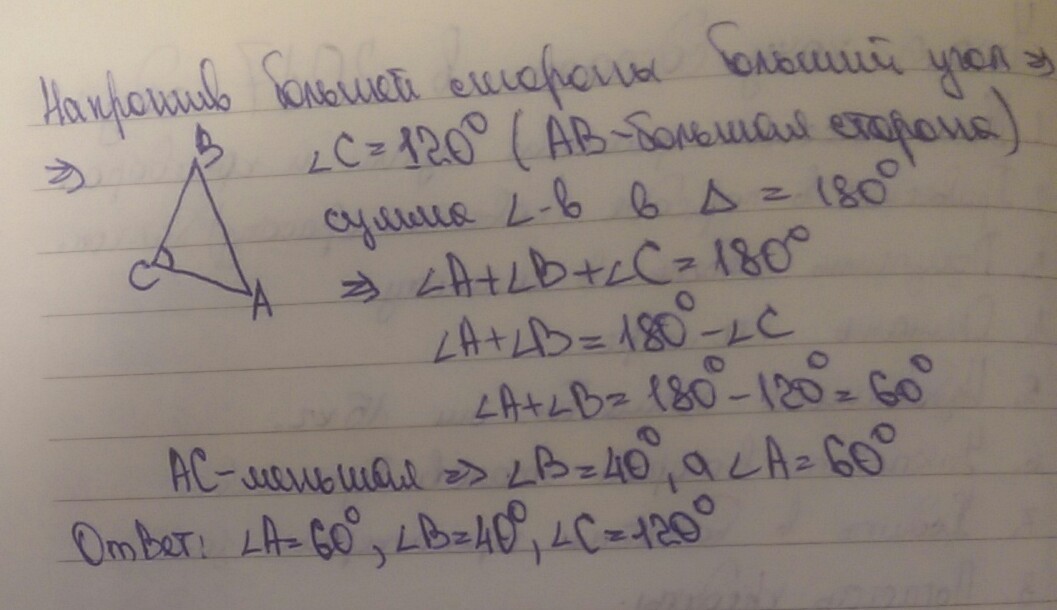 Напротив большей стороны больший угол ⇒
⇒ ∠C = 120° (AB - большая сторона)
сумма ∠-в в Δ = 180°
⇒ ∠A+∠B+∠C = 180°
∠A+∠B = 180° - ∠C
∠A+∠B = 180° - 120° = 60°
AC - меньшая ⇒ ∠B = 40°, а ∠A = 60°
Ответ: ∠A = 60°, ∠B = 40°, ∠C = 120°
B
C
A